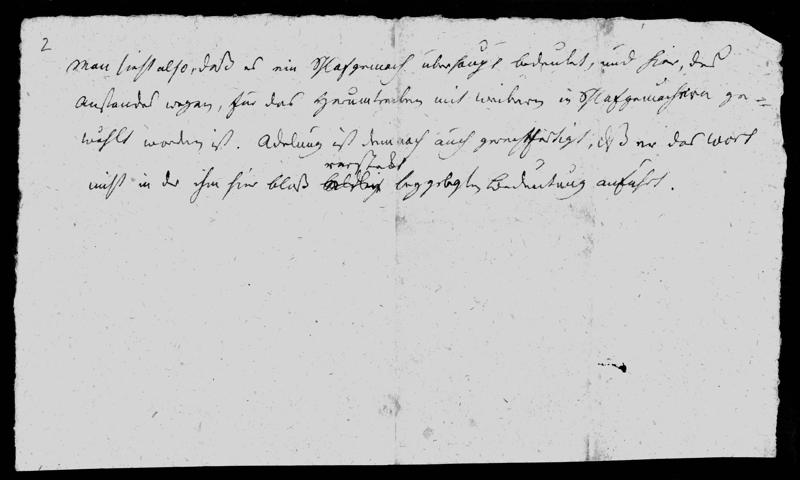 2
Man sieht also, daß es ein Schlafgemach überhaupt bedeutet, und hier, des
Anstandes wegen, für das Herumtreiben mit Weibern in Schlafgemächern ge=
wählt worden ist. Adelung ist demnach auch gerechtfertigt, daß er das Wort
versteckt
nicht in der ihm hier bloß beygelegten Bedeutung anführt.